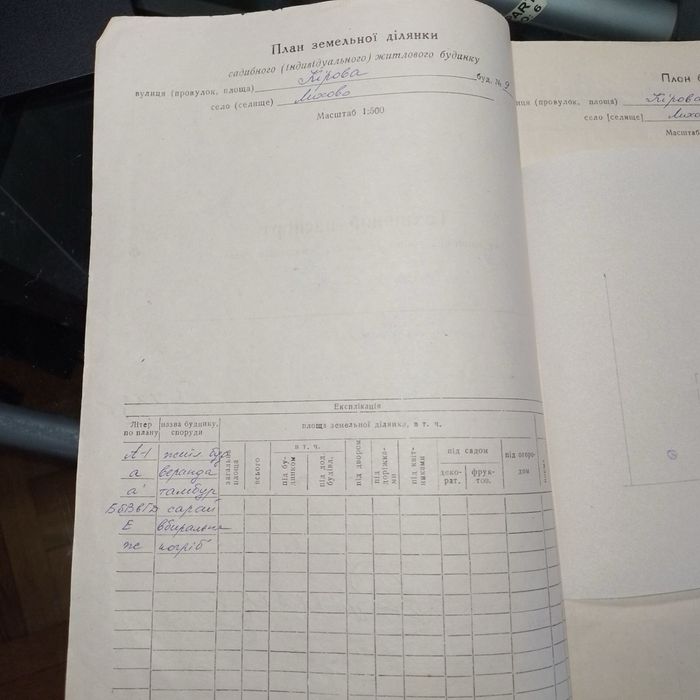 План земельної ділянки
садибного (індивідуального) житлового будинку
вулиця (провулок, площа) Кірова буд. № 9
село (селище) Лихово
Масштаб 1:500
Експлікація
Літер по плану
назва будинку, споруди
площа земельної ділянки, в т. ч.
загальна площа
всього
в т. ч.
під будинком
під двором
під доріжками
під квітниками
під садом
декорат.
фруктов.
під городом
А-1 житл. буд.
а веранда
а' тамбур
сарай
Е вбиральня
ж погріб
План
вулиця (провулок, площа) Кірова
село [селище]
Масштаб